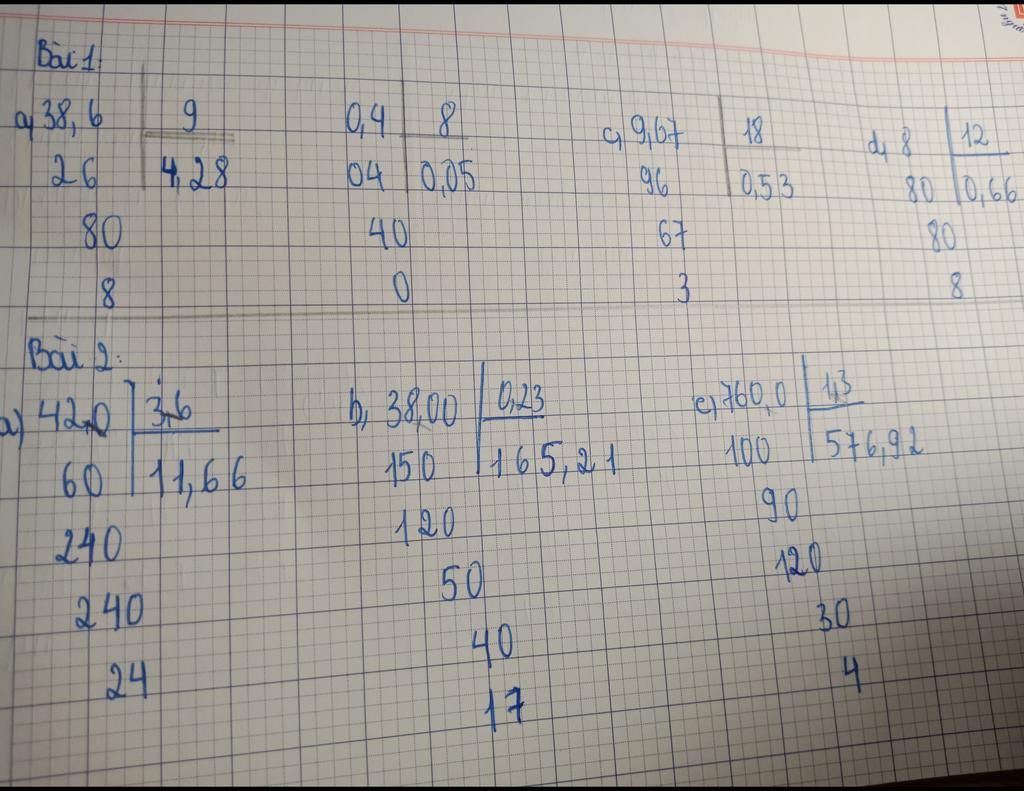 Bài 1:
a, 38,6 9 0,4 8 c, 9,67 18 d, 8 12
26 4,28 04 0,05 96 0,53 80 0,66
80 40 67 80
8 0 3 8
Bài 2:
a) 42,0 3,6 b, 38,00 0,23 c, 760,0 1,3
60 11,66 150 165,21 100 576,92
240 120 90
240 50 120
24 40 30
17 4